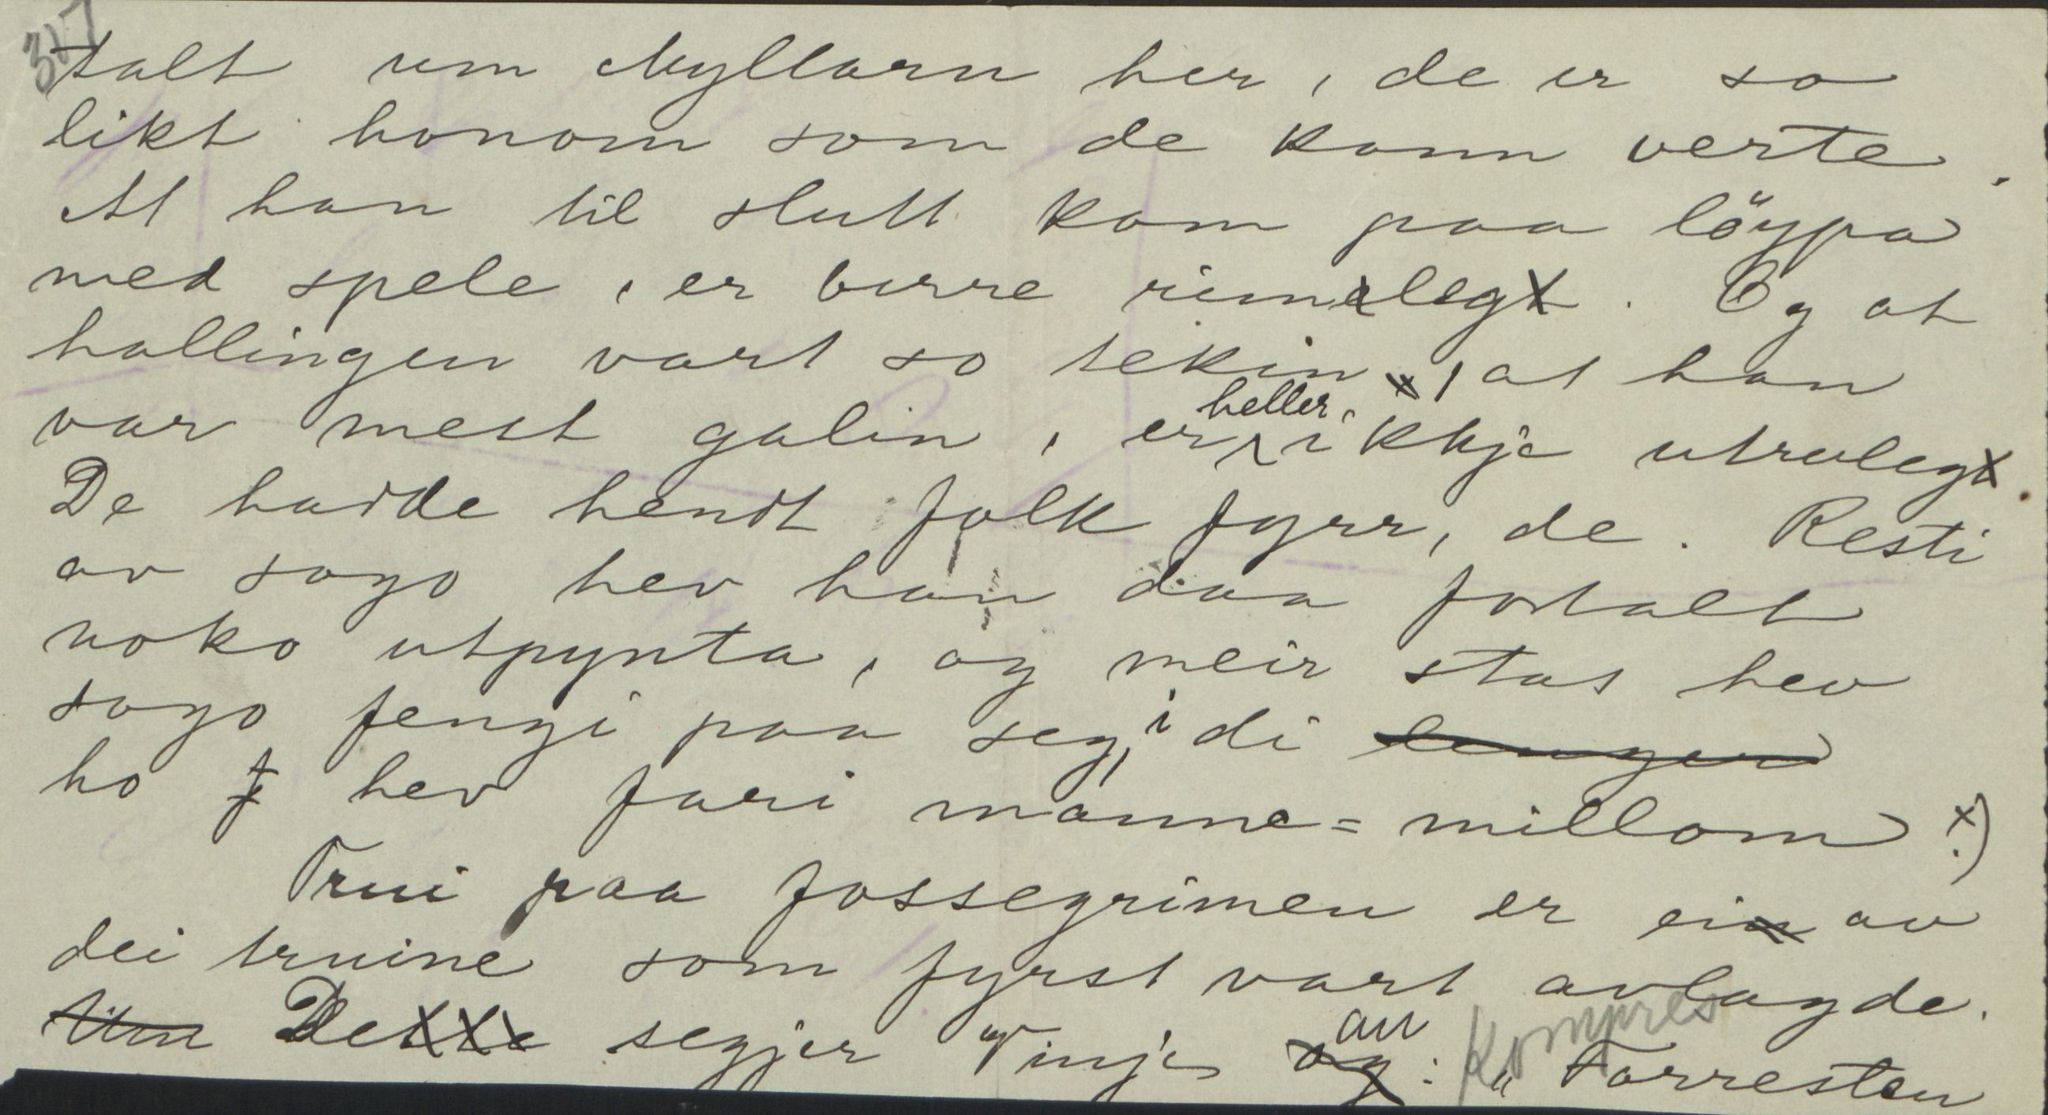 317
talt um Myllarn her, de er so
likt honom som de kann verte.
At han til slutt kom paa löypa
med spele, er berre rimeleg. Og at
hallingen vart so tekin, at han
var mest galin, er heller ikkje utruleg.
De hadde hendt folk fyrr, de. Resti
av sogo hev han daa fortalt
noko utpynta, og meir stas hev
sogo fengi paa seg, i di lenger
ho hev fari manne=millom x)
Trui paa fossegrimen er ei av
dei truine som fyrst vart avlagde.
Um De segjer Vinje au: "Forresten
Kompres